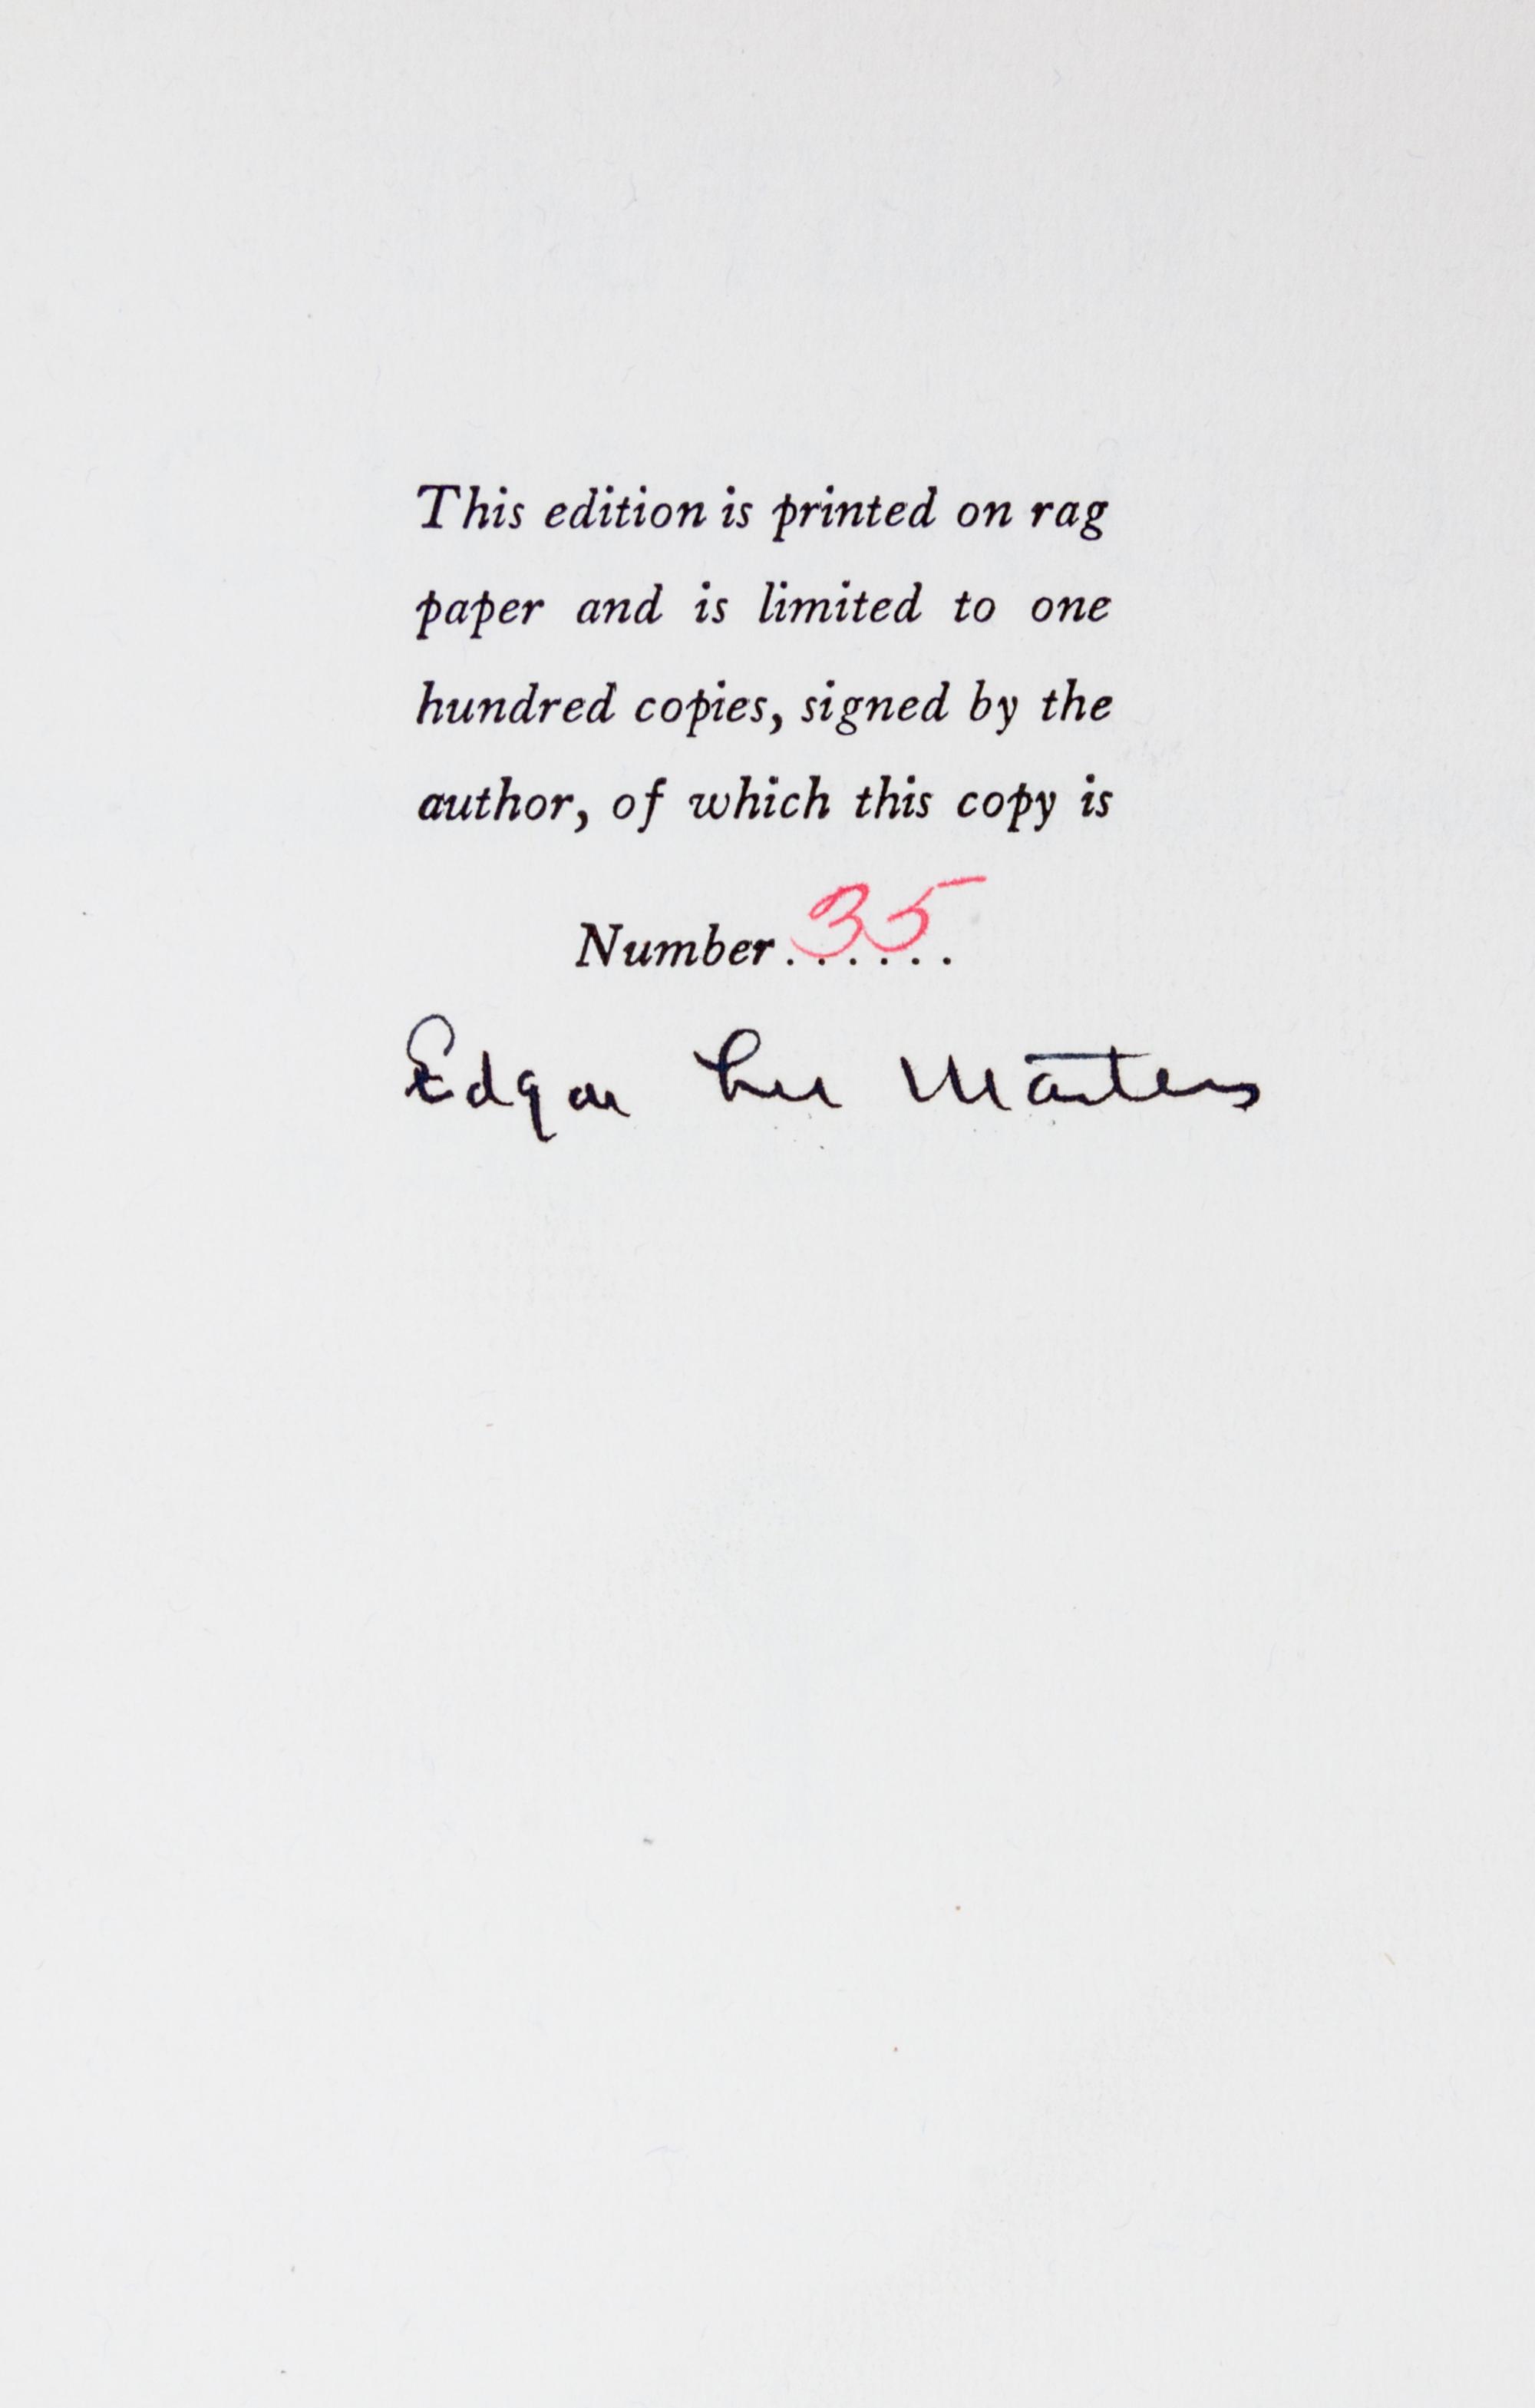 This edition is printed on rag
paper and is limited to one
hundred copies, signed by the
author, of which this copy is
Number...... 35
Edgar Lee Masters